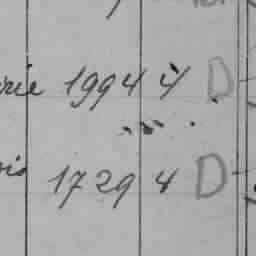 rie 1994 4 D
ois 1729 4 D